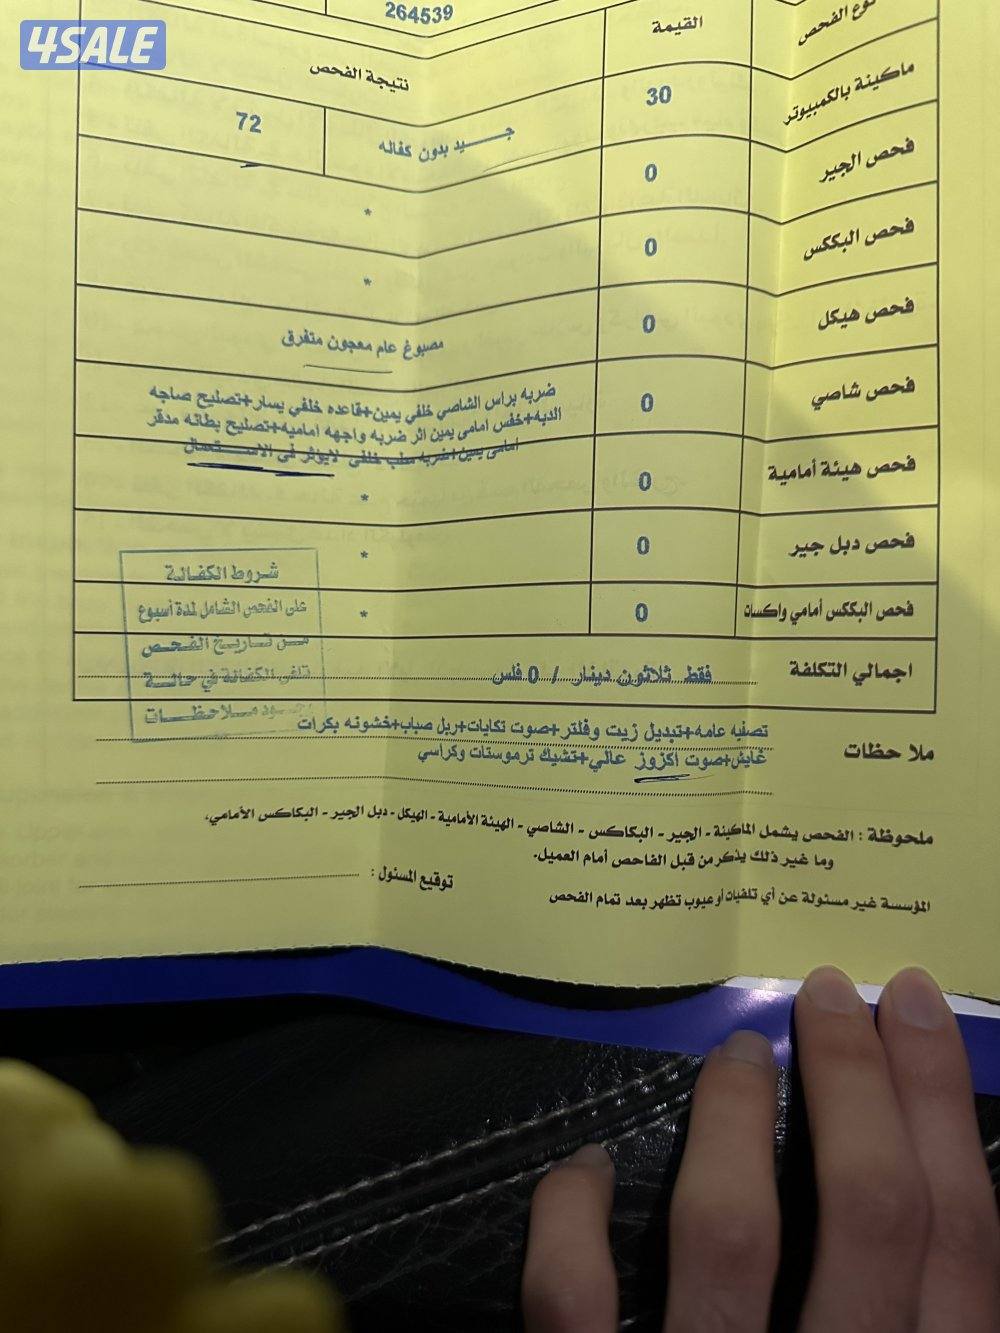 4SALE
264539
نوع الفحص
القيمة
نتيجة الفحص
ماكينة بالكمبيوتر
30
جـــــيد بدون كفاله
72
فحص الجير
0
*
فحص البككس
0
*
فحص هيكل
0
مصبوغ عام معجون متفرق
فحص شاصي
0
ضربه براس الشاصي خلفي يمين+قاعده خلفي يسار+تصليح صاجه
الدبه+خفس امامى يمين اثر ضربه واجهه اماميه+تصليح بطانه مدقر
امامى يمين+ضربه صلب خلفى لايؤثر فى الاســـتعمال
فحص هيئة أمامية
0
*
فحص دبل جير
0
*
فحص البككس أمامي واكسات
0
*
اجمالي التكلفة
فقط ثلاثون دينار / 0 فلس
شروط الكفالة
على الفحص الشامل لمدة أسبوع
مـن تـاريـخ الفـحـص
تلغى الكفالة في حالـــة
وجـــود مـلاحـظــــات
ملاحظات
تصفيه عامه+تبديل زيت وفلتر+صوت تكايات+ربل صباب+خشونه بكرات
غايش+صوت اكزوز عالي+تشيك ترموستات وكراسي
ملحوظة : الفحص يشمل الماكينة - الجير - البكاكس - الشاصي - الهيئة الأمامية - الهيكل - دبل الجير - البكاكس الأمامي،
وما غير ذلك يذكر من قبل الفاحص أمام العميل.
المؤسسة غير مسئولة عن أي تلفيات أو عيوب تظهر بعد تمام الفحص
توقيع المسئول :